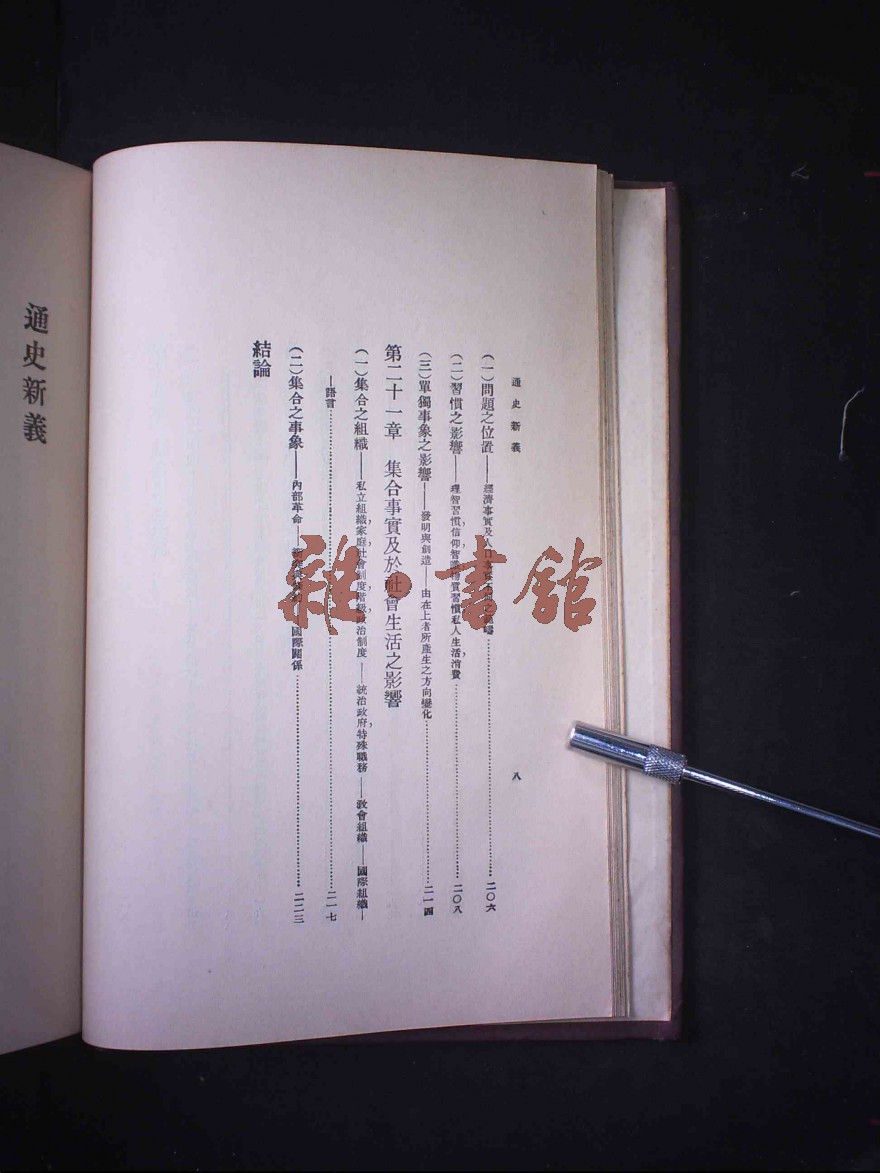 通史新義
八
（一）問題之位置——經濟事實及人口
二〇六
（二）習慣之影響——理智習慣，信仰，智識，物質習慣，私人生活，消費
二〇八
（三）單獨事象之影響——發明與創造——由在上者所產生之方向變化
二一四
第二十一章　集合事實及於社會生活之影響
（一）集合之組織——私立組織，家庭，社會制度，階級，政治制度——統治政府，特殊職務——教會組織——國際組織—
—語言
二一七
（二）集合之事象——內部革命——國際關係
二二三
結論
通史新義
雜·書館